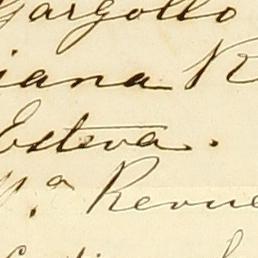 Gargollo
iana R
Esteva.
Mª Revue